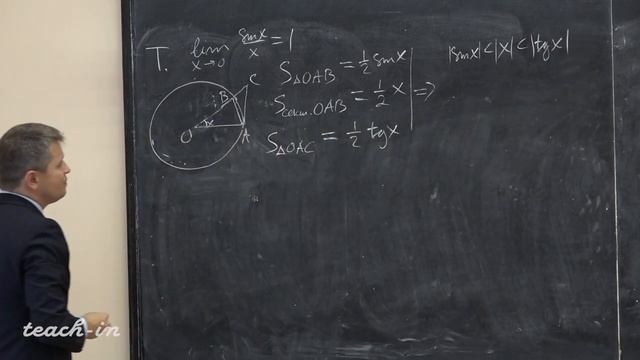 T. lim sinx/x = 1
x→0
S△OAB = 1/2 sinx
Sсект.OAB = 1/2 x
S△OAC = 1/2 tgx
⇒
|sinx|<|x|<|tgx|
C
B
x
O
A
teach-in